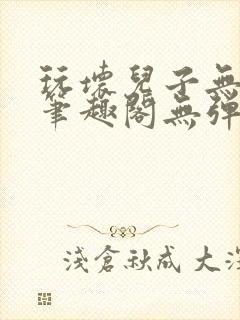 玩壞兒子無
筆趣閣無彈
淺倉秋成 大深